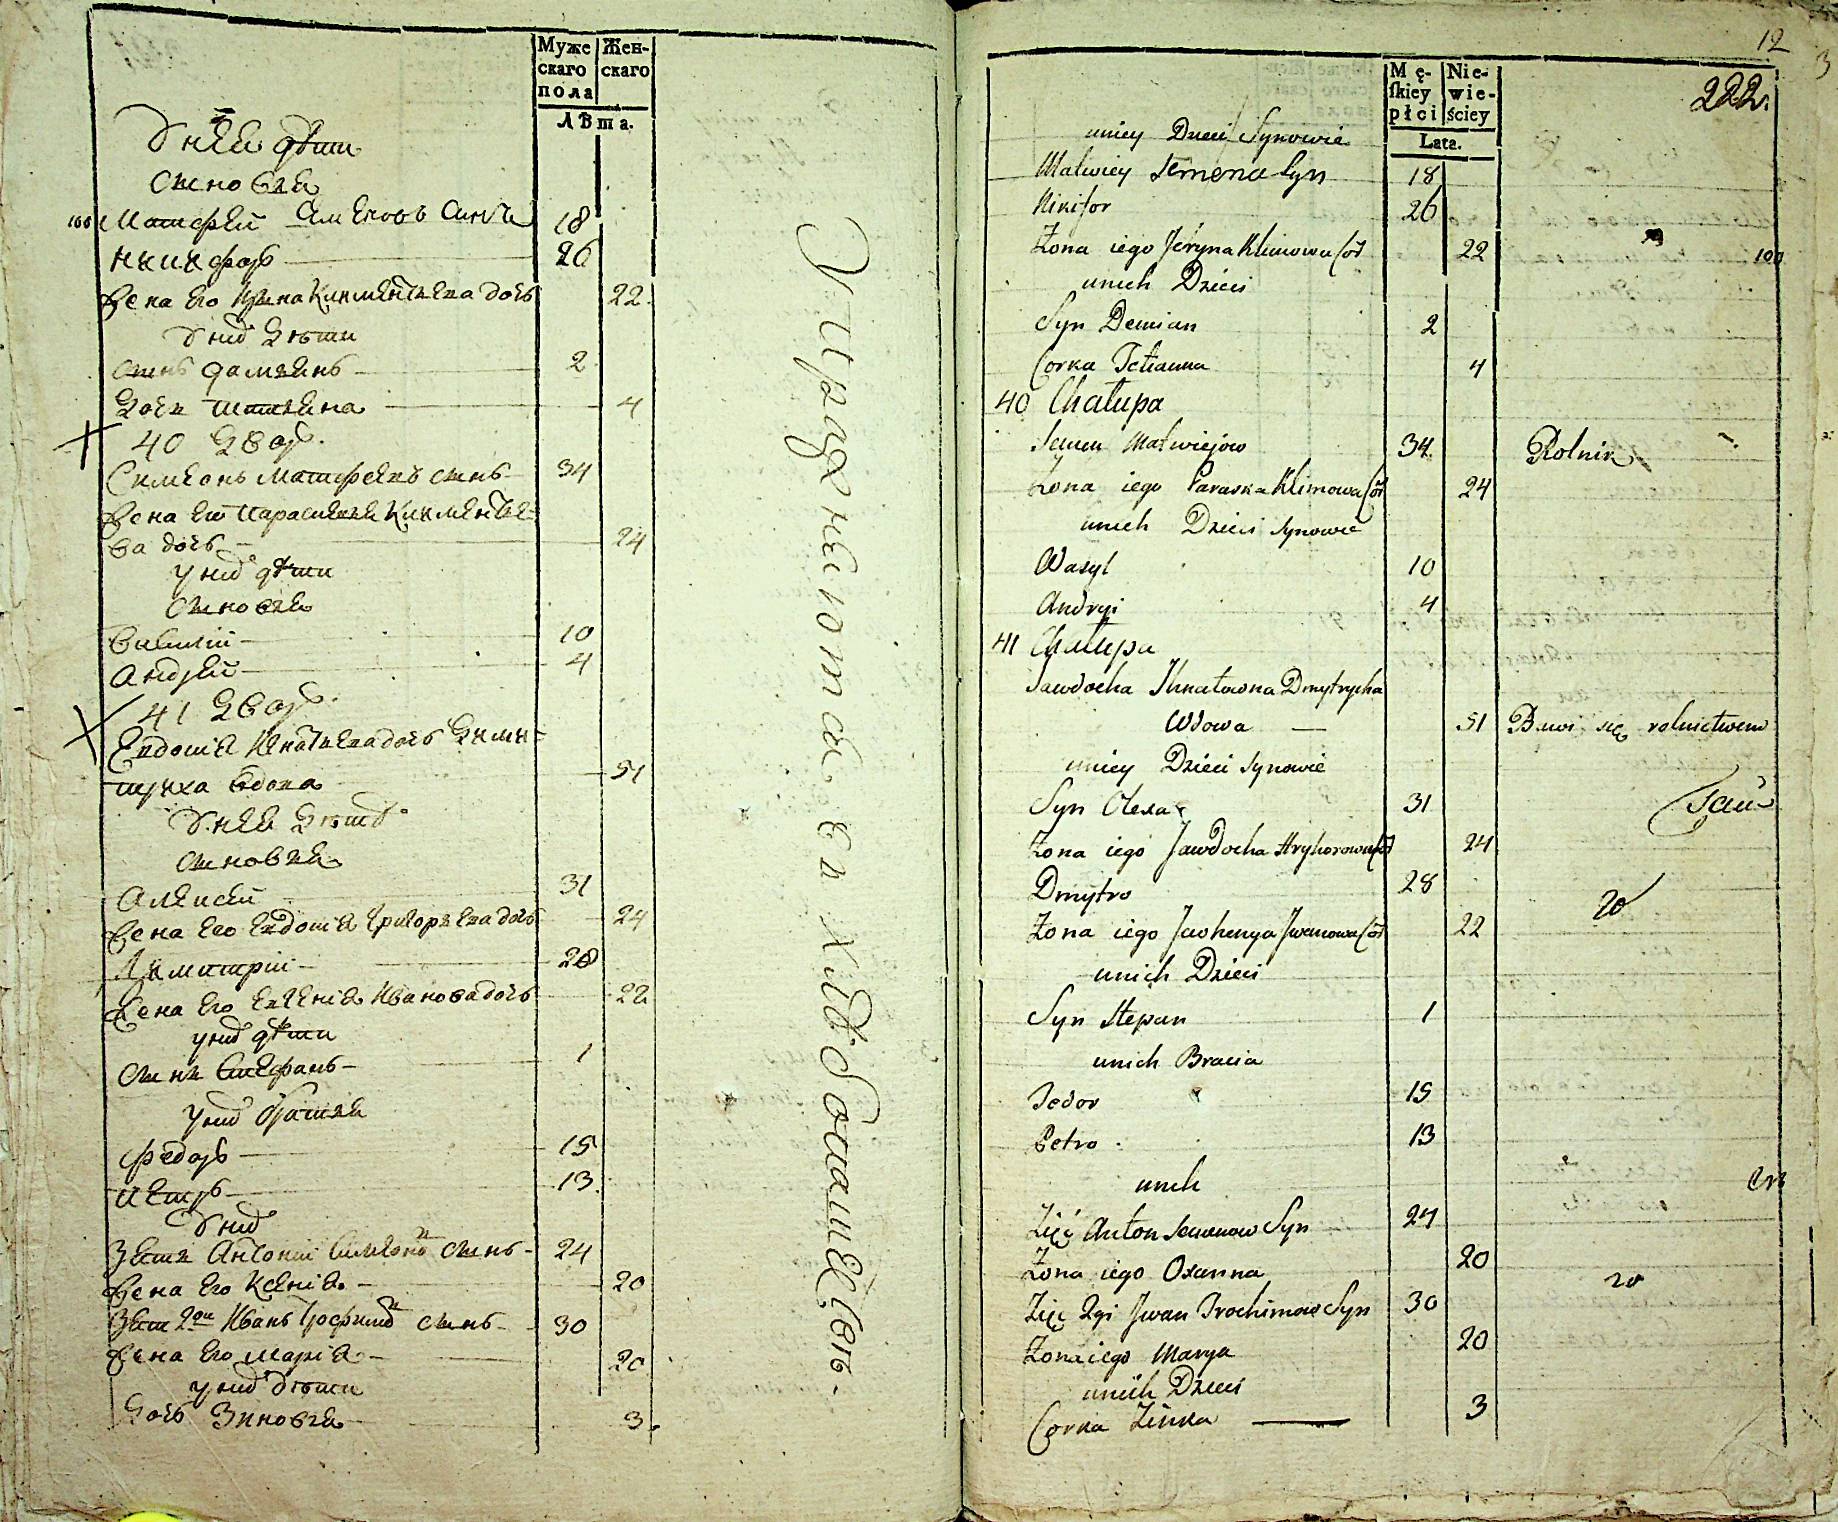 Муже
скаго
пола
Жен-
скаго
Лѣта.
У неи дѣти
сыновья
Матфей Симеоновъ сынъ 18
Никифоръ 26
Жена его Ирина Климентьева дочь 22
У них дѣти
сынъ Дамианъ 2
дочь Татиана 4
40 двор.
Симеонъ Матфеевъ сынъ 34
Жена его Параскевия Климентье-
ва дочь 24
У них дѣти
сыновья
Василий 10
Андрей 4
41 двор.
Евдокия Игнатьева дочь Дими-
триха вдова 51
У неи дѣти
сыновья
Алексей 31
Жена его Евдокия Григорьева дочь 24
Димитрий 28
Жена его Евгения Иванова дочь 22
у них дѣти
сынъ Стефанъ 1
у них братья
Федоръ 15
Петръ 13
У них
Зять Антоний Симеонов сынъ 24
Жена его Ксения 20
Зять 2ой Иванъ Трофимов сынъ 30
Жена его Мария 20
у них дѣти
Дочь Зиновья 3
Упражняются в хлебопашестве.
12
3
222.
Mę-
skiey
płci
Nie-
wie-
ściey
Lata.
uniey Dzieci Synowie
Matwiey Semena Syn 18
Nikifor 26
Żona iego Jeryna Klimowa Cór 22 100
unich Dzieci
Syn Demian 2
Corka Tetianna 4
40 Chałupa
Semen Matwiejów 34 Rolnik
Żona iego Paraska Klimowa Cór 24
unich Dzieci Synowie
Wasyl 10
Andryi 4
41 Chałupa
Jawdocha Ihnatowna Dmytrycha
Wdowa — 51 Bawi się rolnictwem
uniey Dzieci Synowie
Syn Olexa 31
Żona iego Jawdocha Hryhorowna Cór 24
Dmytro 28 20
Żona iego Jawhenya Iwanowa Cór 22
unich Dzieci
Syn Stepan 1
unich Bracia
Fedor 15
Petro 13
unich
Zięć Anton Semenow Syn 24
Żona iego Oxanna 20
Zięć 2gi Iwan Trochimow Syn 30 20
Żona iego Marya 20
unich Dzieci
Corka Zinka 3